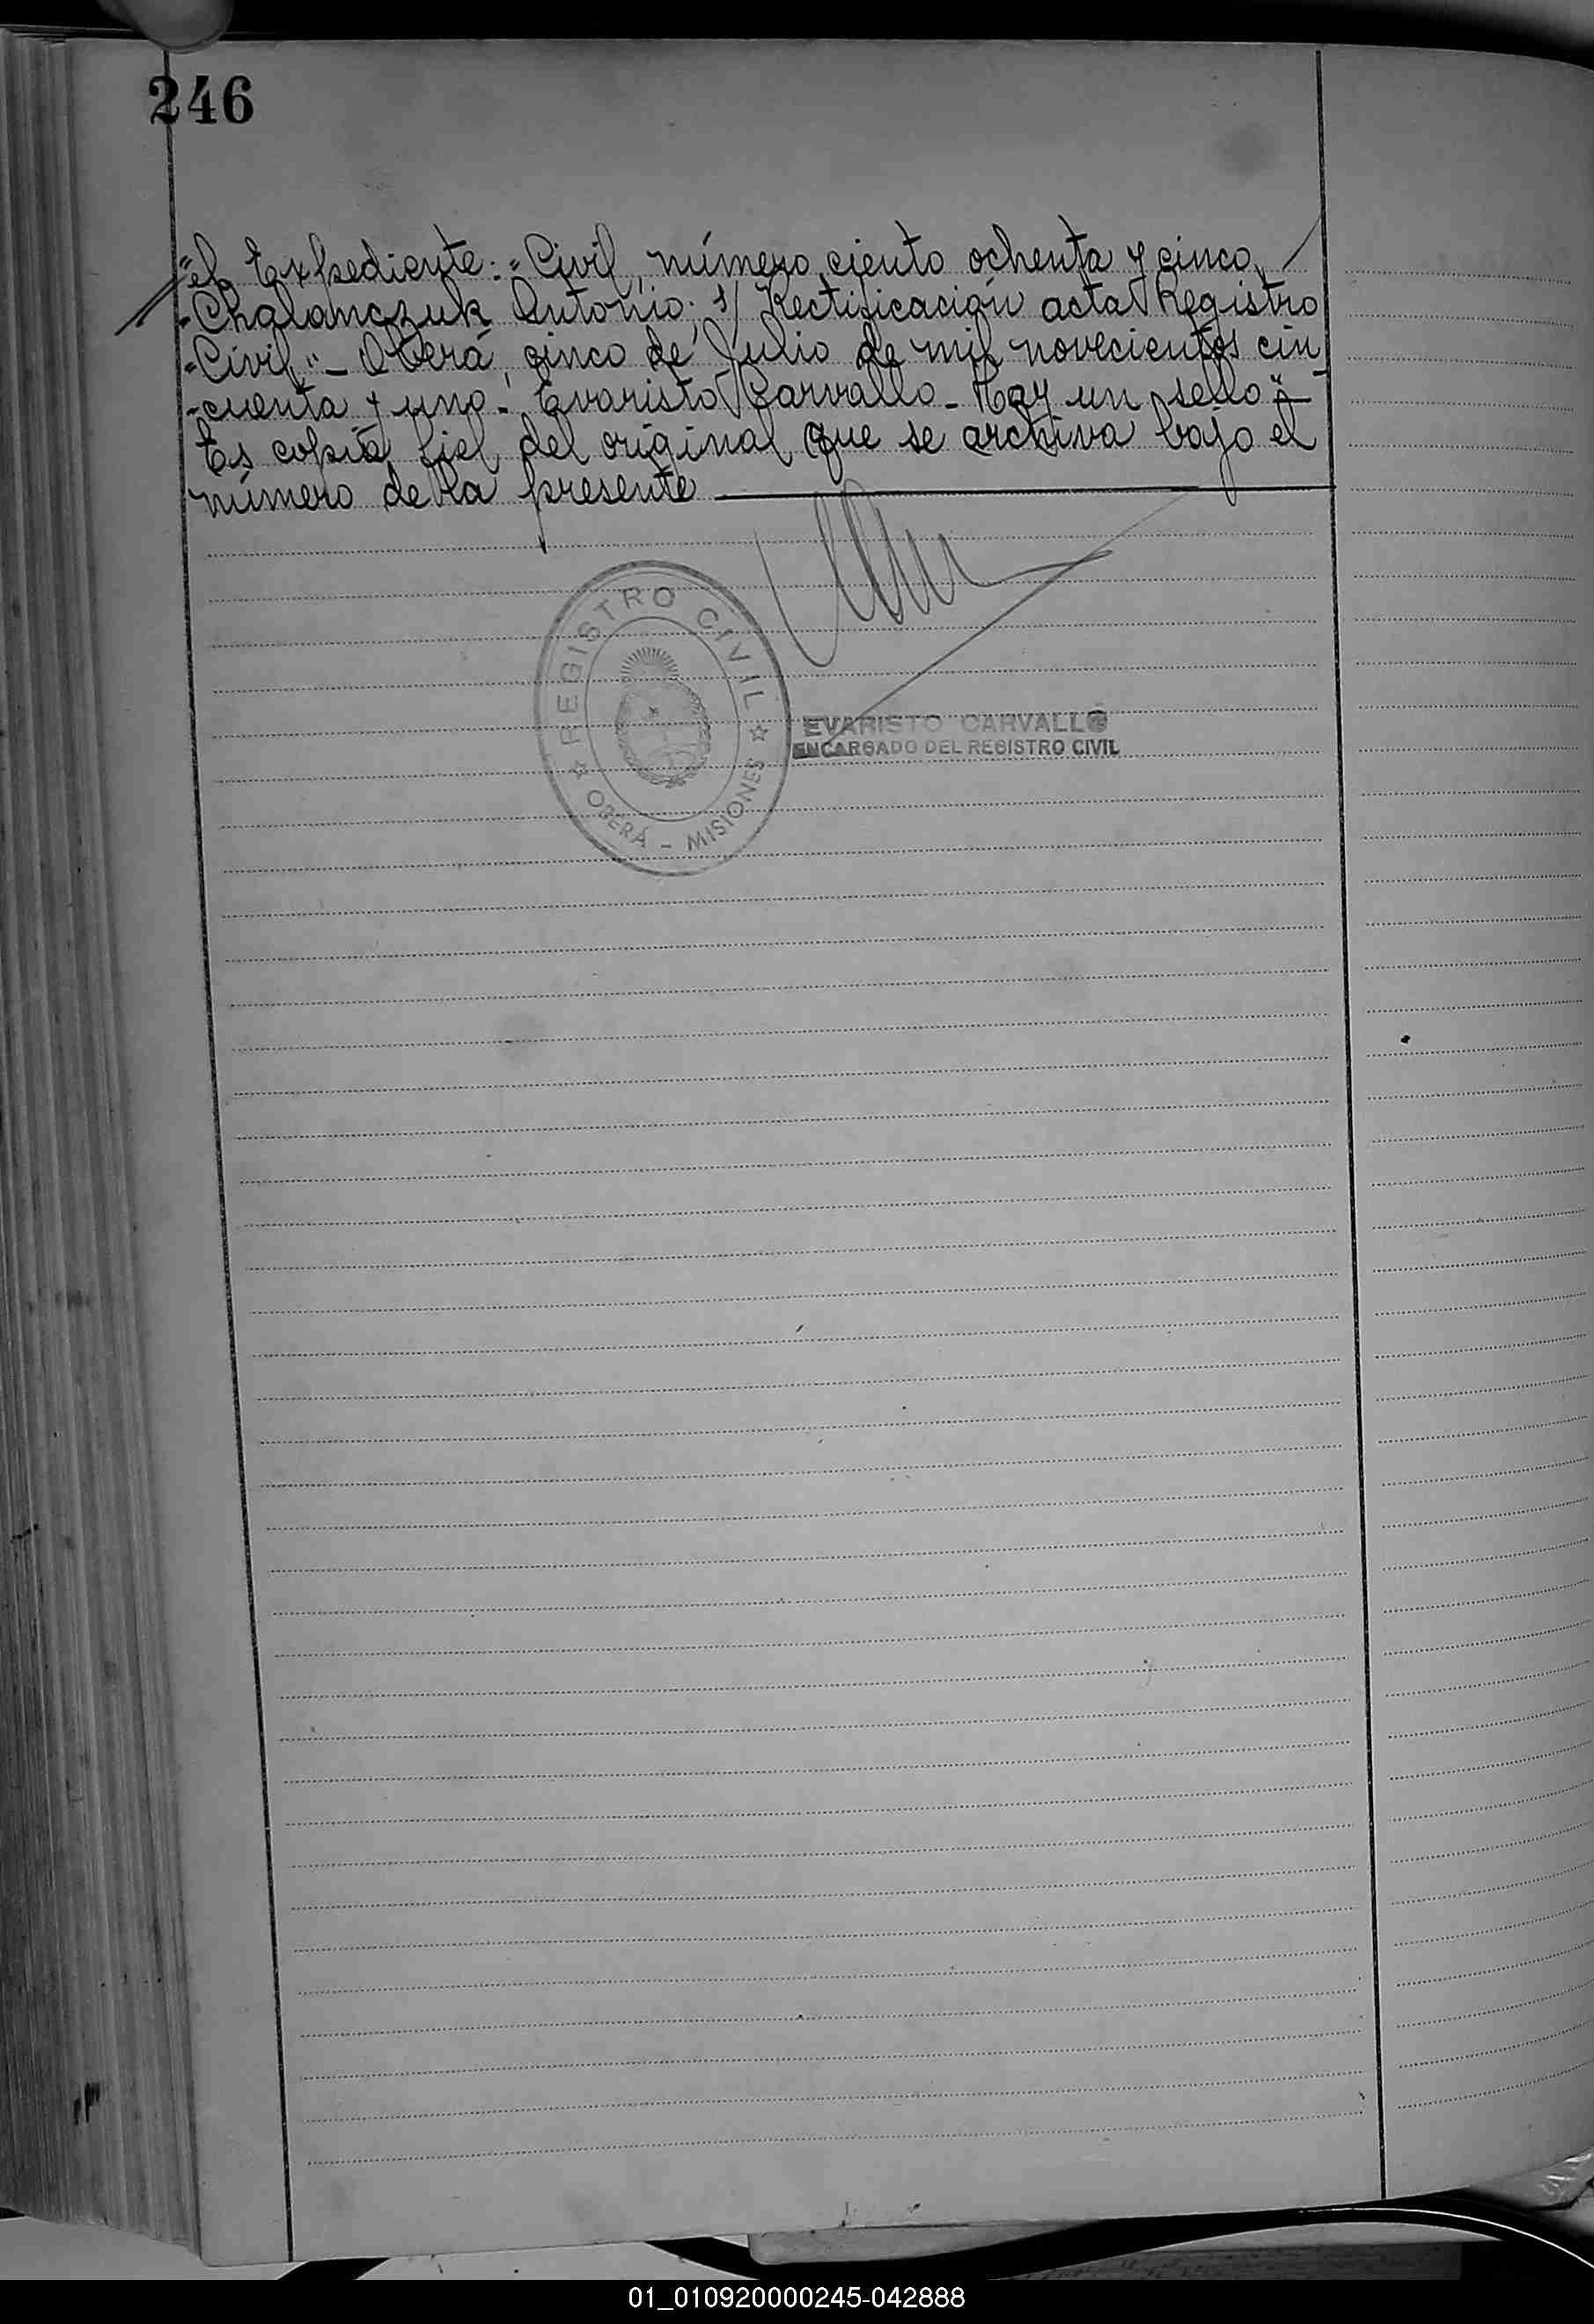 246
"el Expediente: "Civil, número ciento ochenta y cinco,
"Chalanczuk Antonio; s/ Rectificación acta Registro
"Civil".- Oberá, cinco de Julio de mil novecientos cin
"cuenta y uno.- Evaristo Carvallo- Hay un sello".-
Es copia fiel del original que se archiva bajo el
número de la presente
REGISTRO CIVIL
OBERÁ - MISIONES
EVARISTO CARVALLO
ENCARGADO DEL REGISTRO CIVIL
01_010920000245-042888